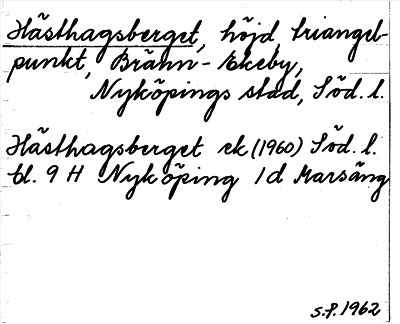 Hästhagsberget, höjd, triangel-
punkt, Bränn-Ekeby,
Nyköpings stad, Söd. l.
Hästhagsberget ek (1960) Söd. l.
bl. 9 H Nyköping 1d Marsäng
S.P. 1962